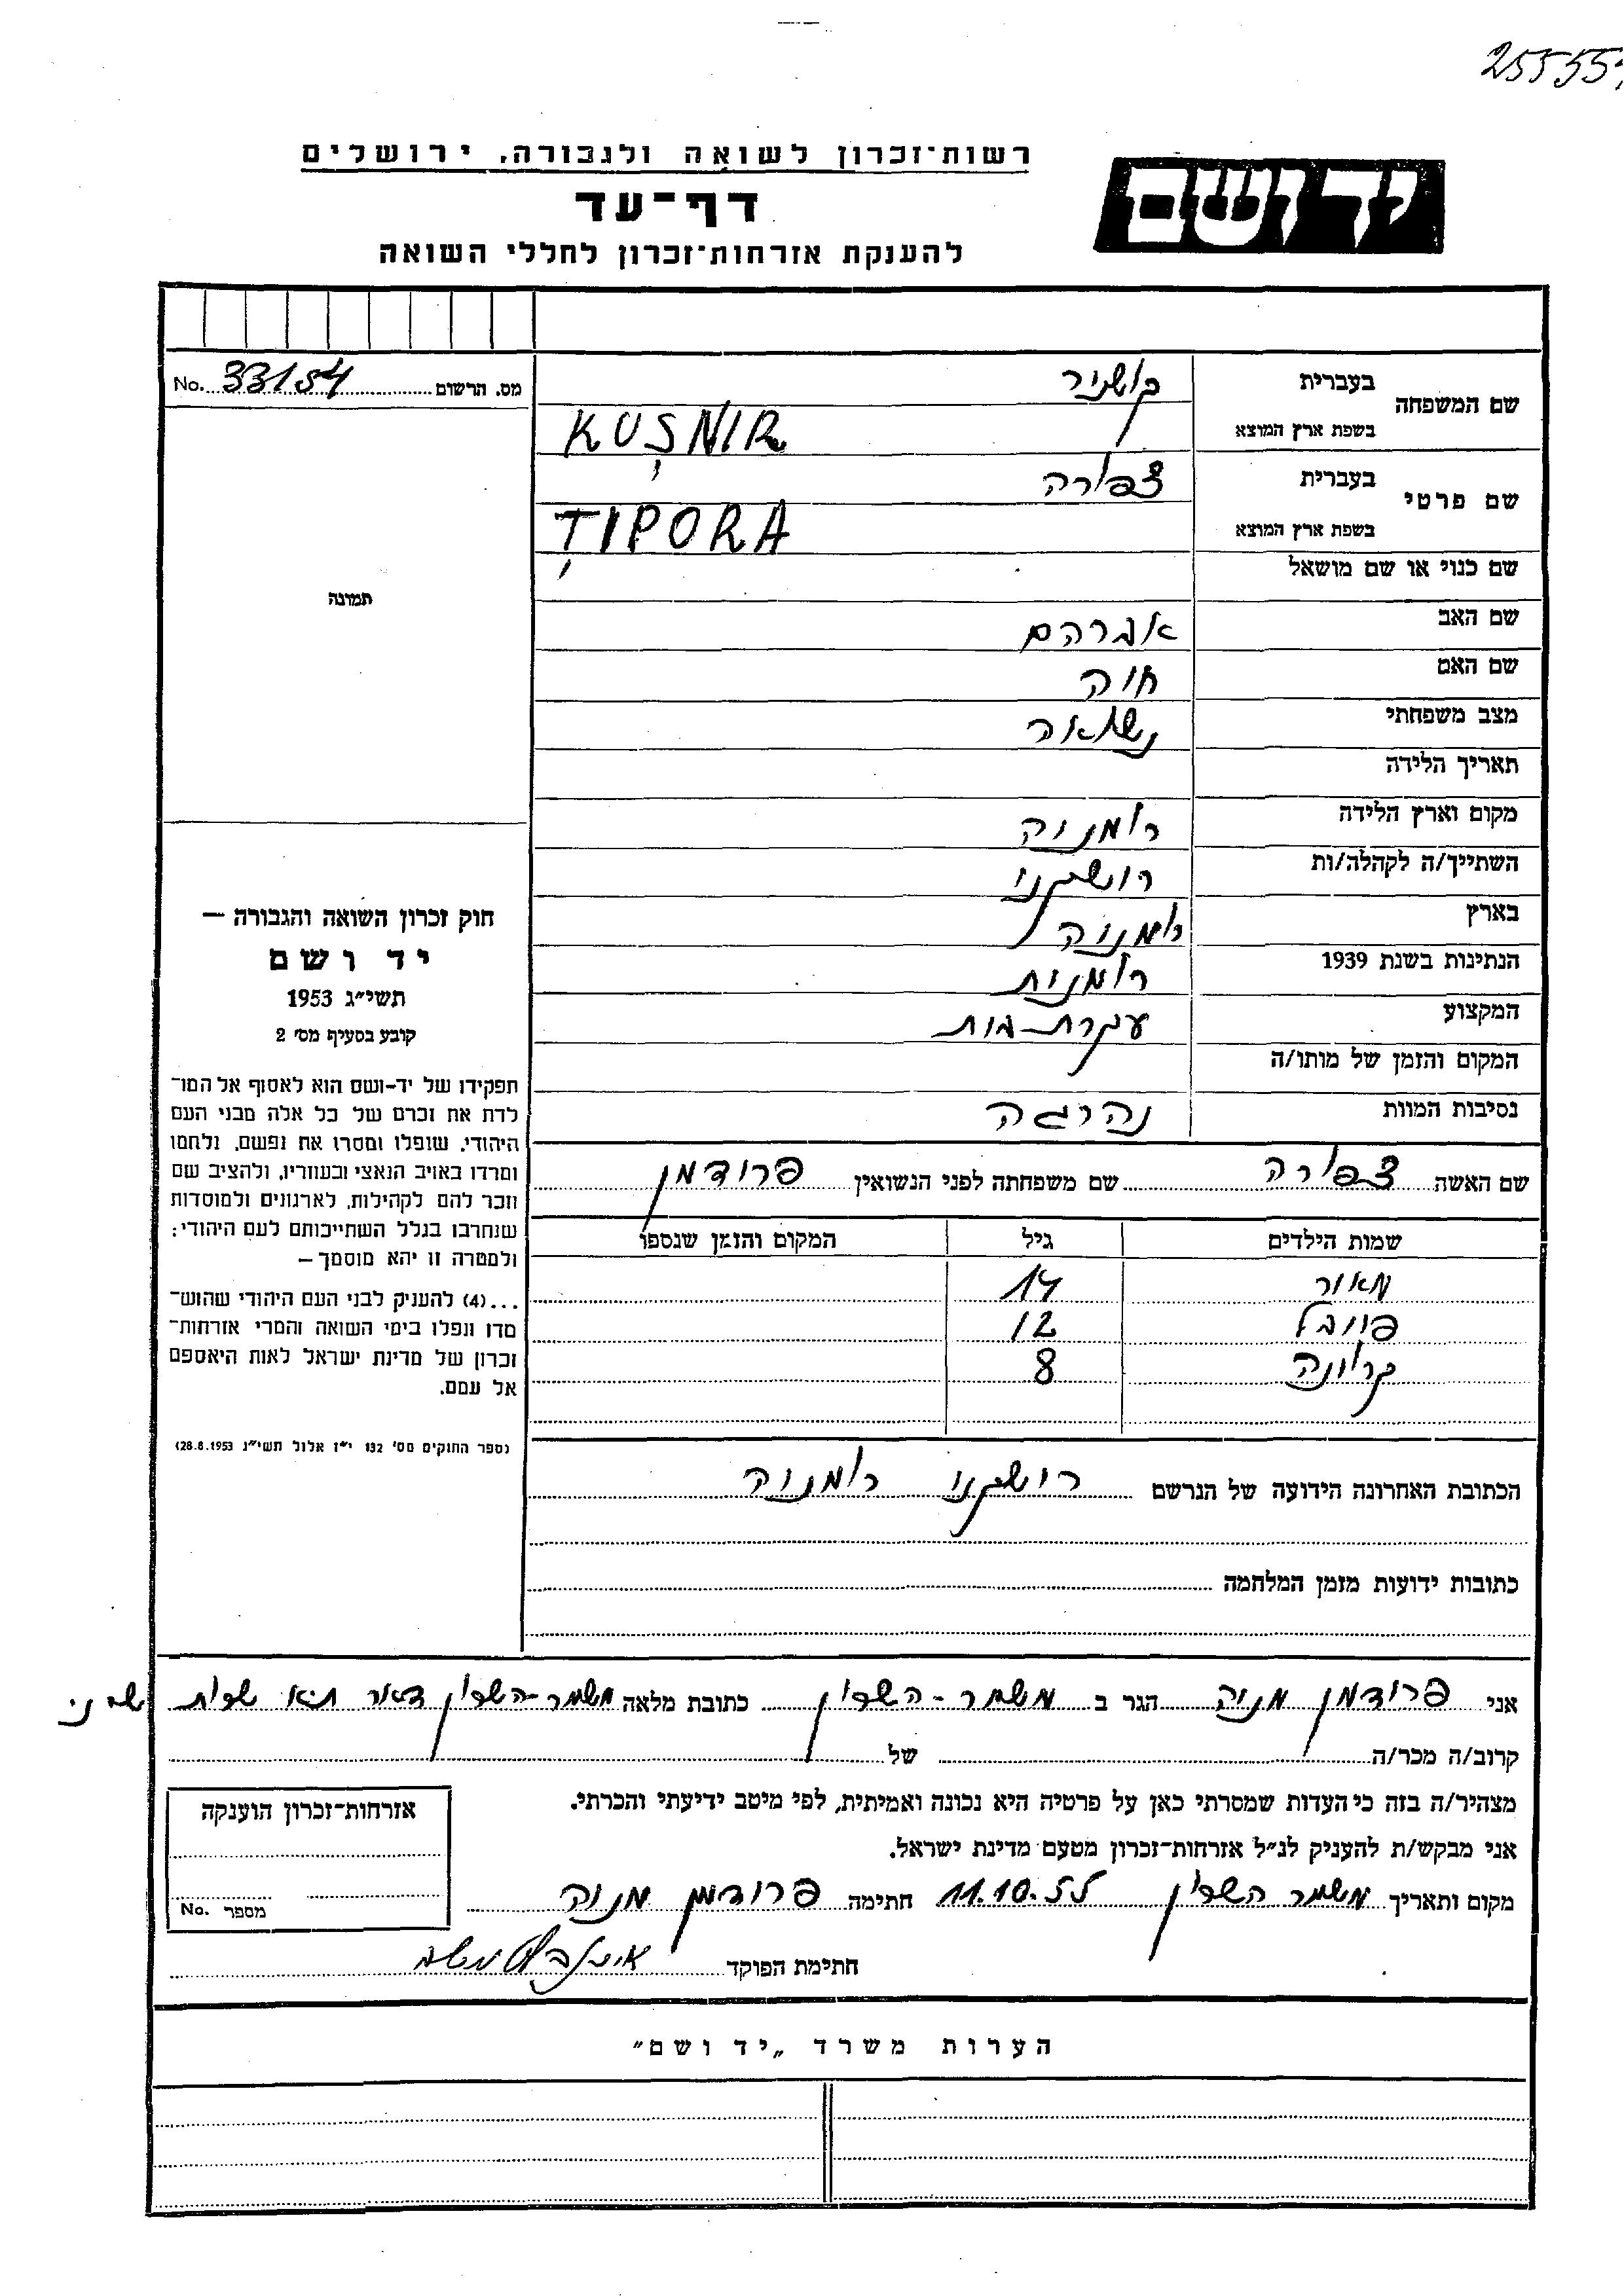 25555
רשות־זכרון לשואה ולגבורה, ירושלים
יד ושם
דף־עד
להענקת אזרחות־זכרון לחללי השואה
מס. הרשום 33154 No.
שם המשפחה בעברית קושניר
בשפת ארץ המוצא KUȘNIR
שם פרטי בעברית צפורה
בשפת ארץ המוצא ȚIPORA
שם כנוי או שם מושאל
שם האב אברהם
שם האם חוה
מצב משפחתי נשואה
תאריך הלידה
מקום וארץ הלידה רומניה
השתייך/ה לקהלה/ות רושקני
בארץ רומניה
הנתינות בשנת 1939 רומנית
המקצוע עקרת-בית
המקום והזמן של מותו/ה
נסיבות המוות נהרגה
שם האשה צפורה שם משפחתה לפני הנשואין פרודמן
שמות הילדים גיל המקום והזמן שנספו
מאור 14
פויבל 12
קרוינה 8
הכתובת האחרונה הידועה של הנרשם רושקני רומניה
כתובות ידועות מזמן המלחמה
תמונה
חוק זכרון השואה והגבורה —
יד ושם
תשי״ג 1953
קובע בסעיף מס׳ 2
תפקידו של יד-ושם הוא לאסוף אל המו־
לדת את זכרם של כל אלה מבני העם
היהודי, שנפלו ומסרו את נפשם, נלחמו
ומרדו באויב הנאצי ובעוזריו, ולהציב שם
וזכר להם לקהילות, לארגונים ולמוסדות
שנחרבו בגלל השתייכותם לעם היהודי;
ולמטרה זו יהא מוסמך —
...(4) להעניק לבני העם היהודי שהוש־
מדו ונפלו בימי השואה והמרי אזרחות־
זכרון של מדינת ישראל לאות היאספם
אל עמם.
(ספר החוקים מס׳ 132 י״ז אלול תשי״ג 28.8.1953)
אני פרודמן מניה הגר ב משמר-השרון כתובת מלאה משמר-השרון דאר תא שרות
קרוב/ה מכר/ה של
מצהיר/ה בזה כי העדות שמסרתי כאן על פרטיה היא נכונה ואמיתית, לפי מיטב ידיעתי והכרתי.
אני מבקש/ת להעניק לנ״ל אזרחות־זכרון מטעם מדינת ישראל.
מקום ותאריך משמר השרון 11.10.55 חתימה פרודמן מניה
חתימת הפוקד
אזרחות־זכרון הוענקה
מספר No.
הערות משרד „יד ושם״